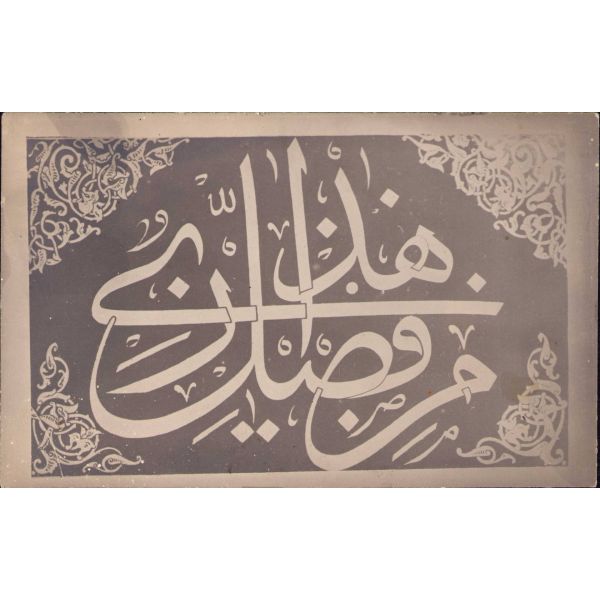 هذا من فضل ربي